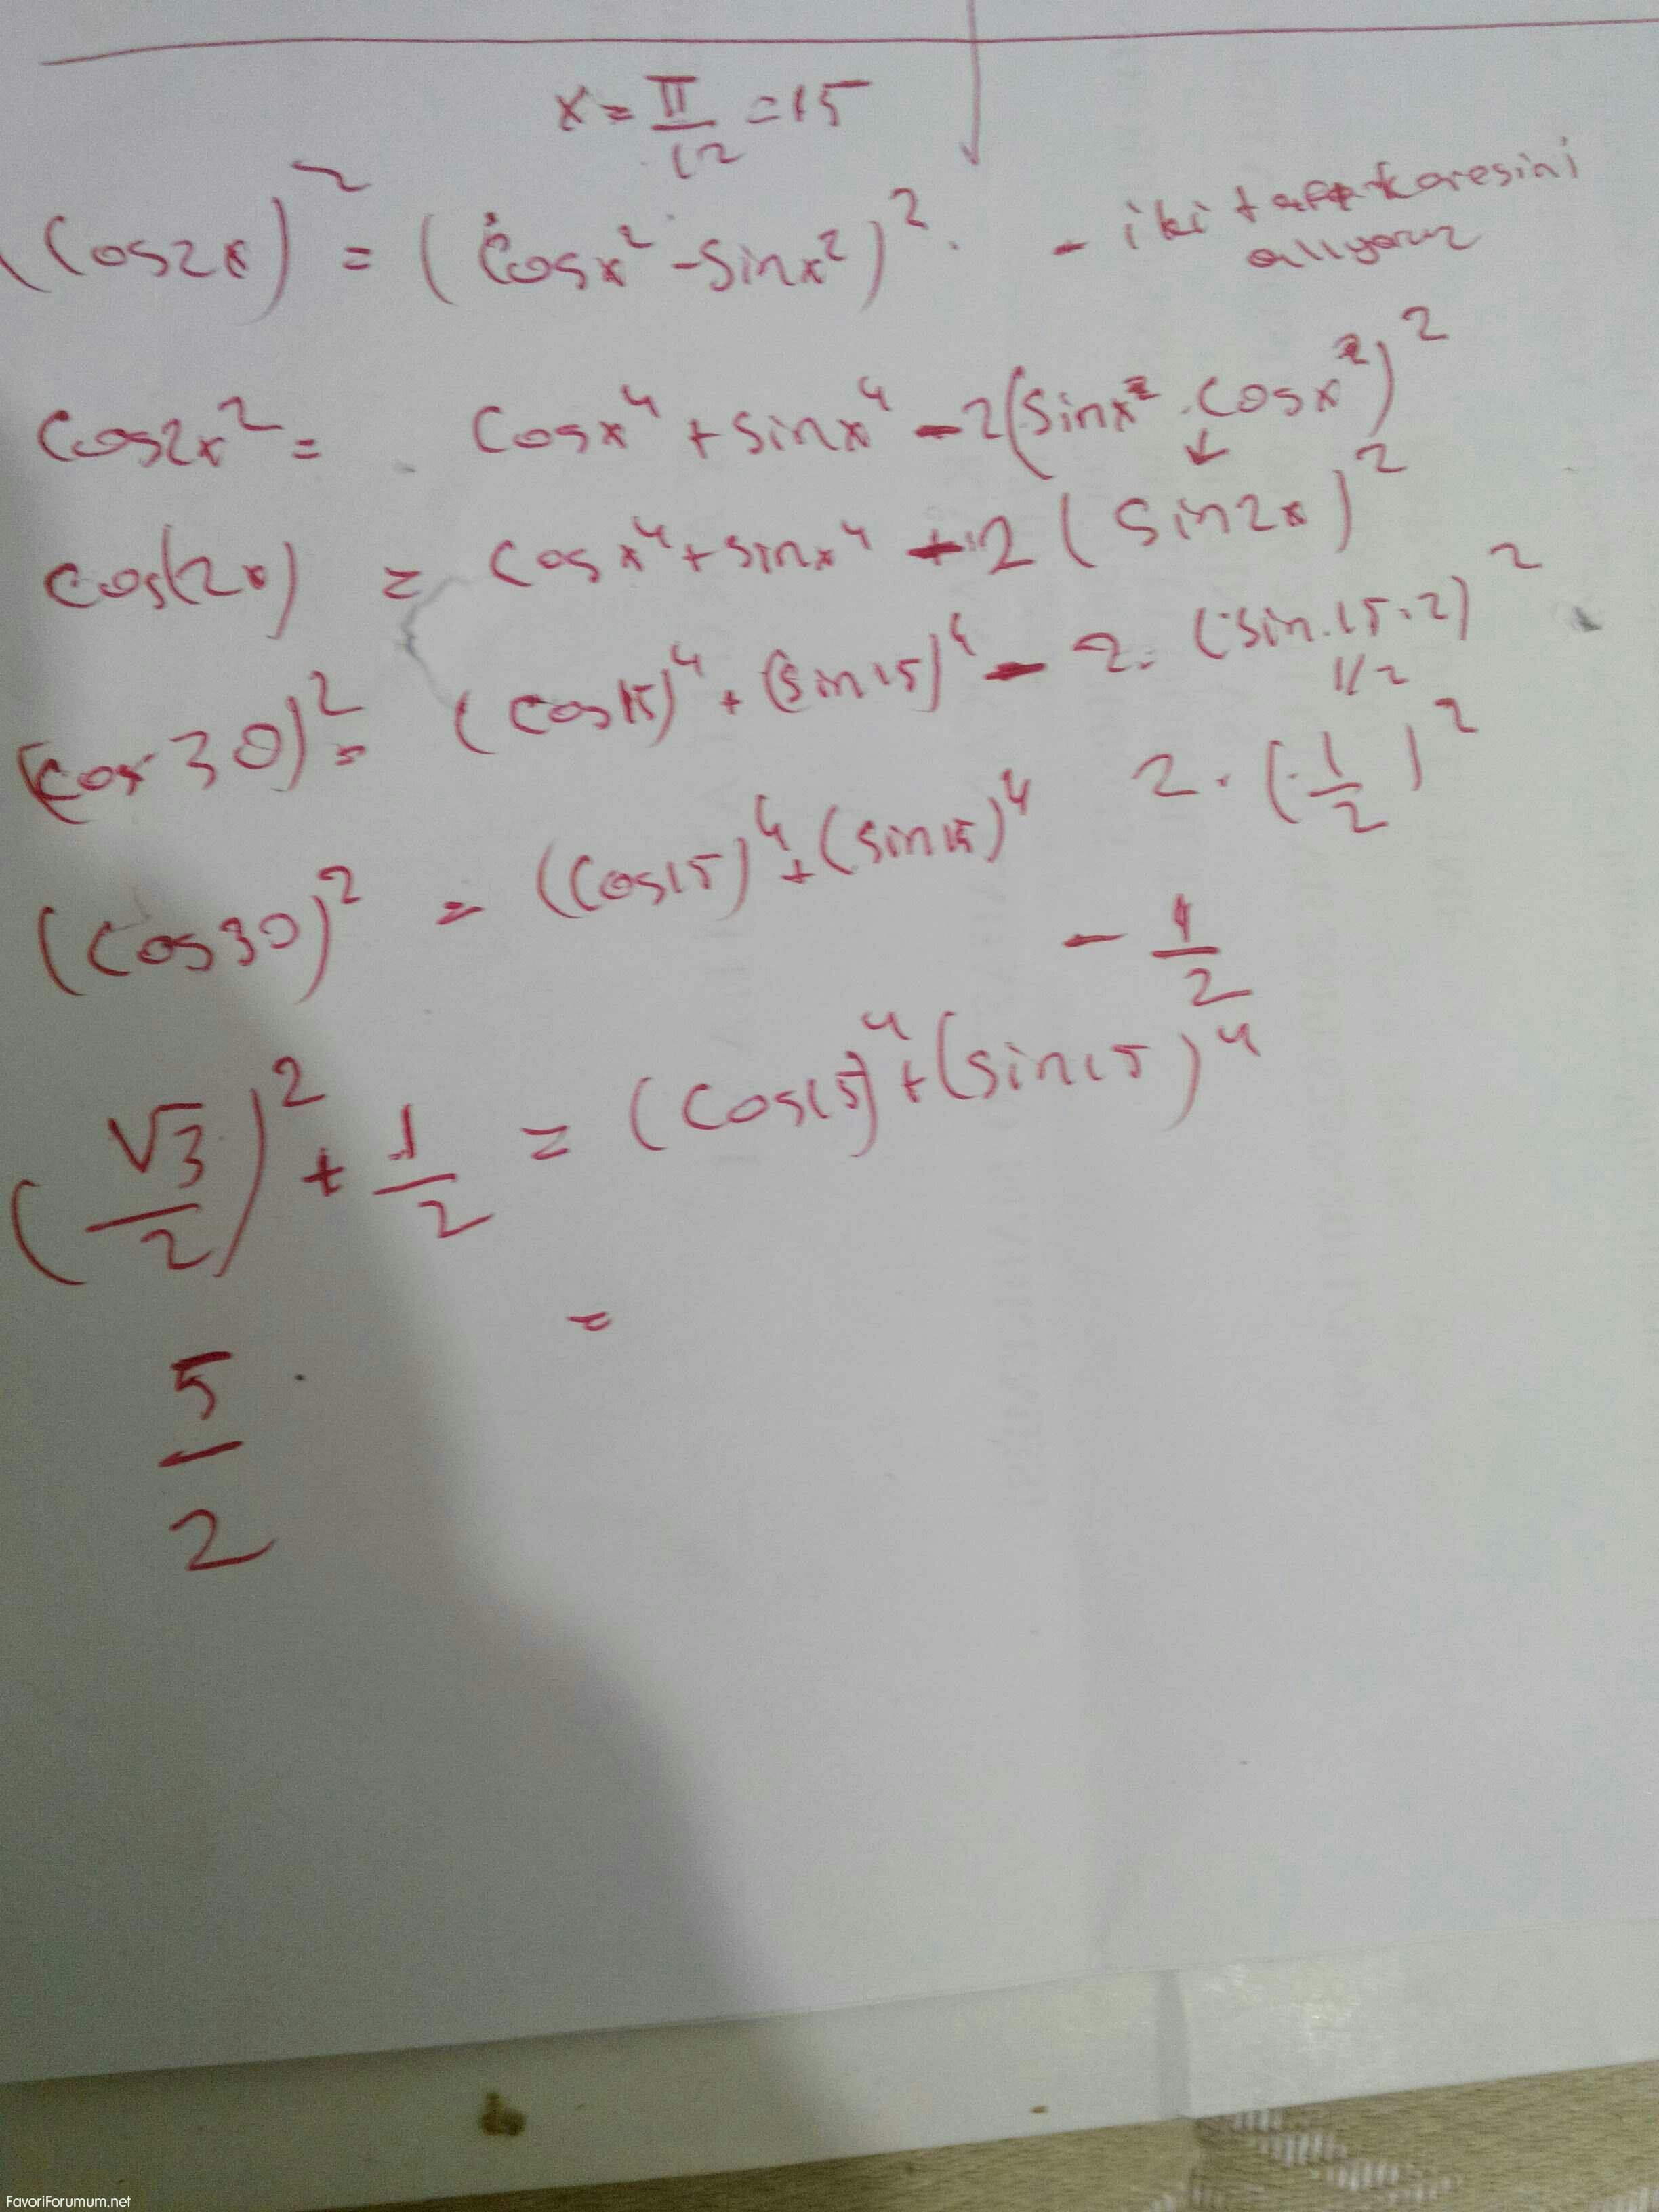 x = π/12 = 15
(cos2x)² = (cosx² - sinx²)². - iki taraf karesini
alıyoruz
cos2x² = cosx⁴ + sinx⁴ - 2(sinx² . cosx²)²
cos(2x) = cosx⁴ + sinx⁴ + 2 (sin2x)²
(cos30)² = (cos15)⁴ + (sin15)⁴ - 2. (sin.15.2)²
1/2
(cos30)² = (cos15)⁴ + (sin15)⁴ 2 . (1/2)²
- 1/2
(√3/2)² + 1/2 = (cos15)⁴ + (sin15)⁴
5/2 =
FavoriForumum.net